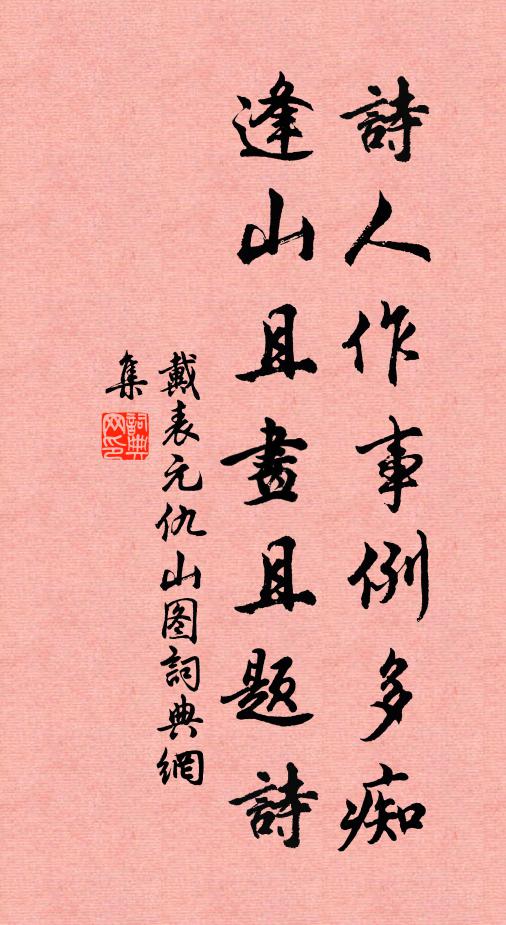 詩人作事例多痴
逢山且畫且題詩
戴表元仇山图詞典網
集
詞典网印